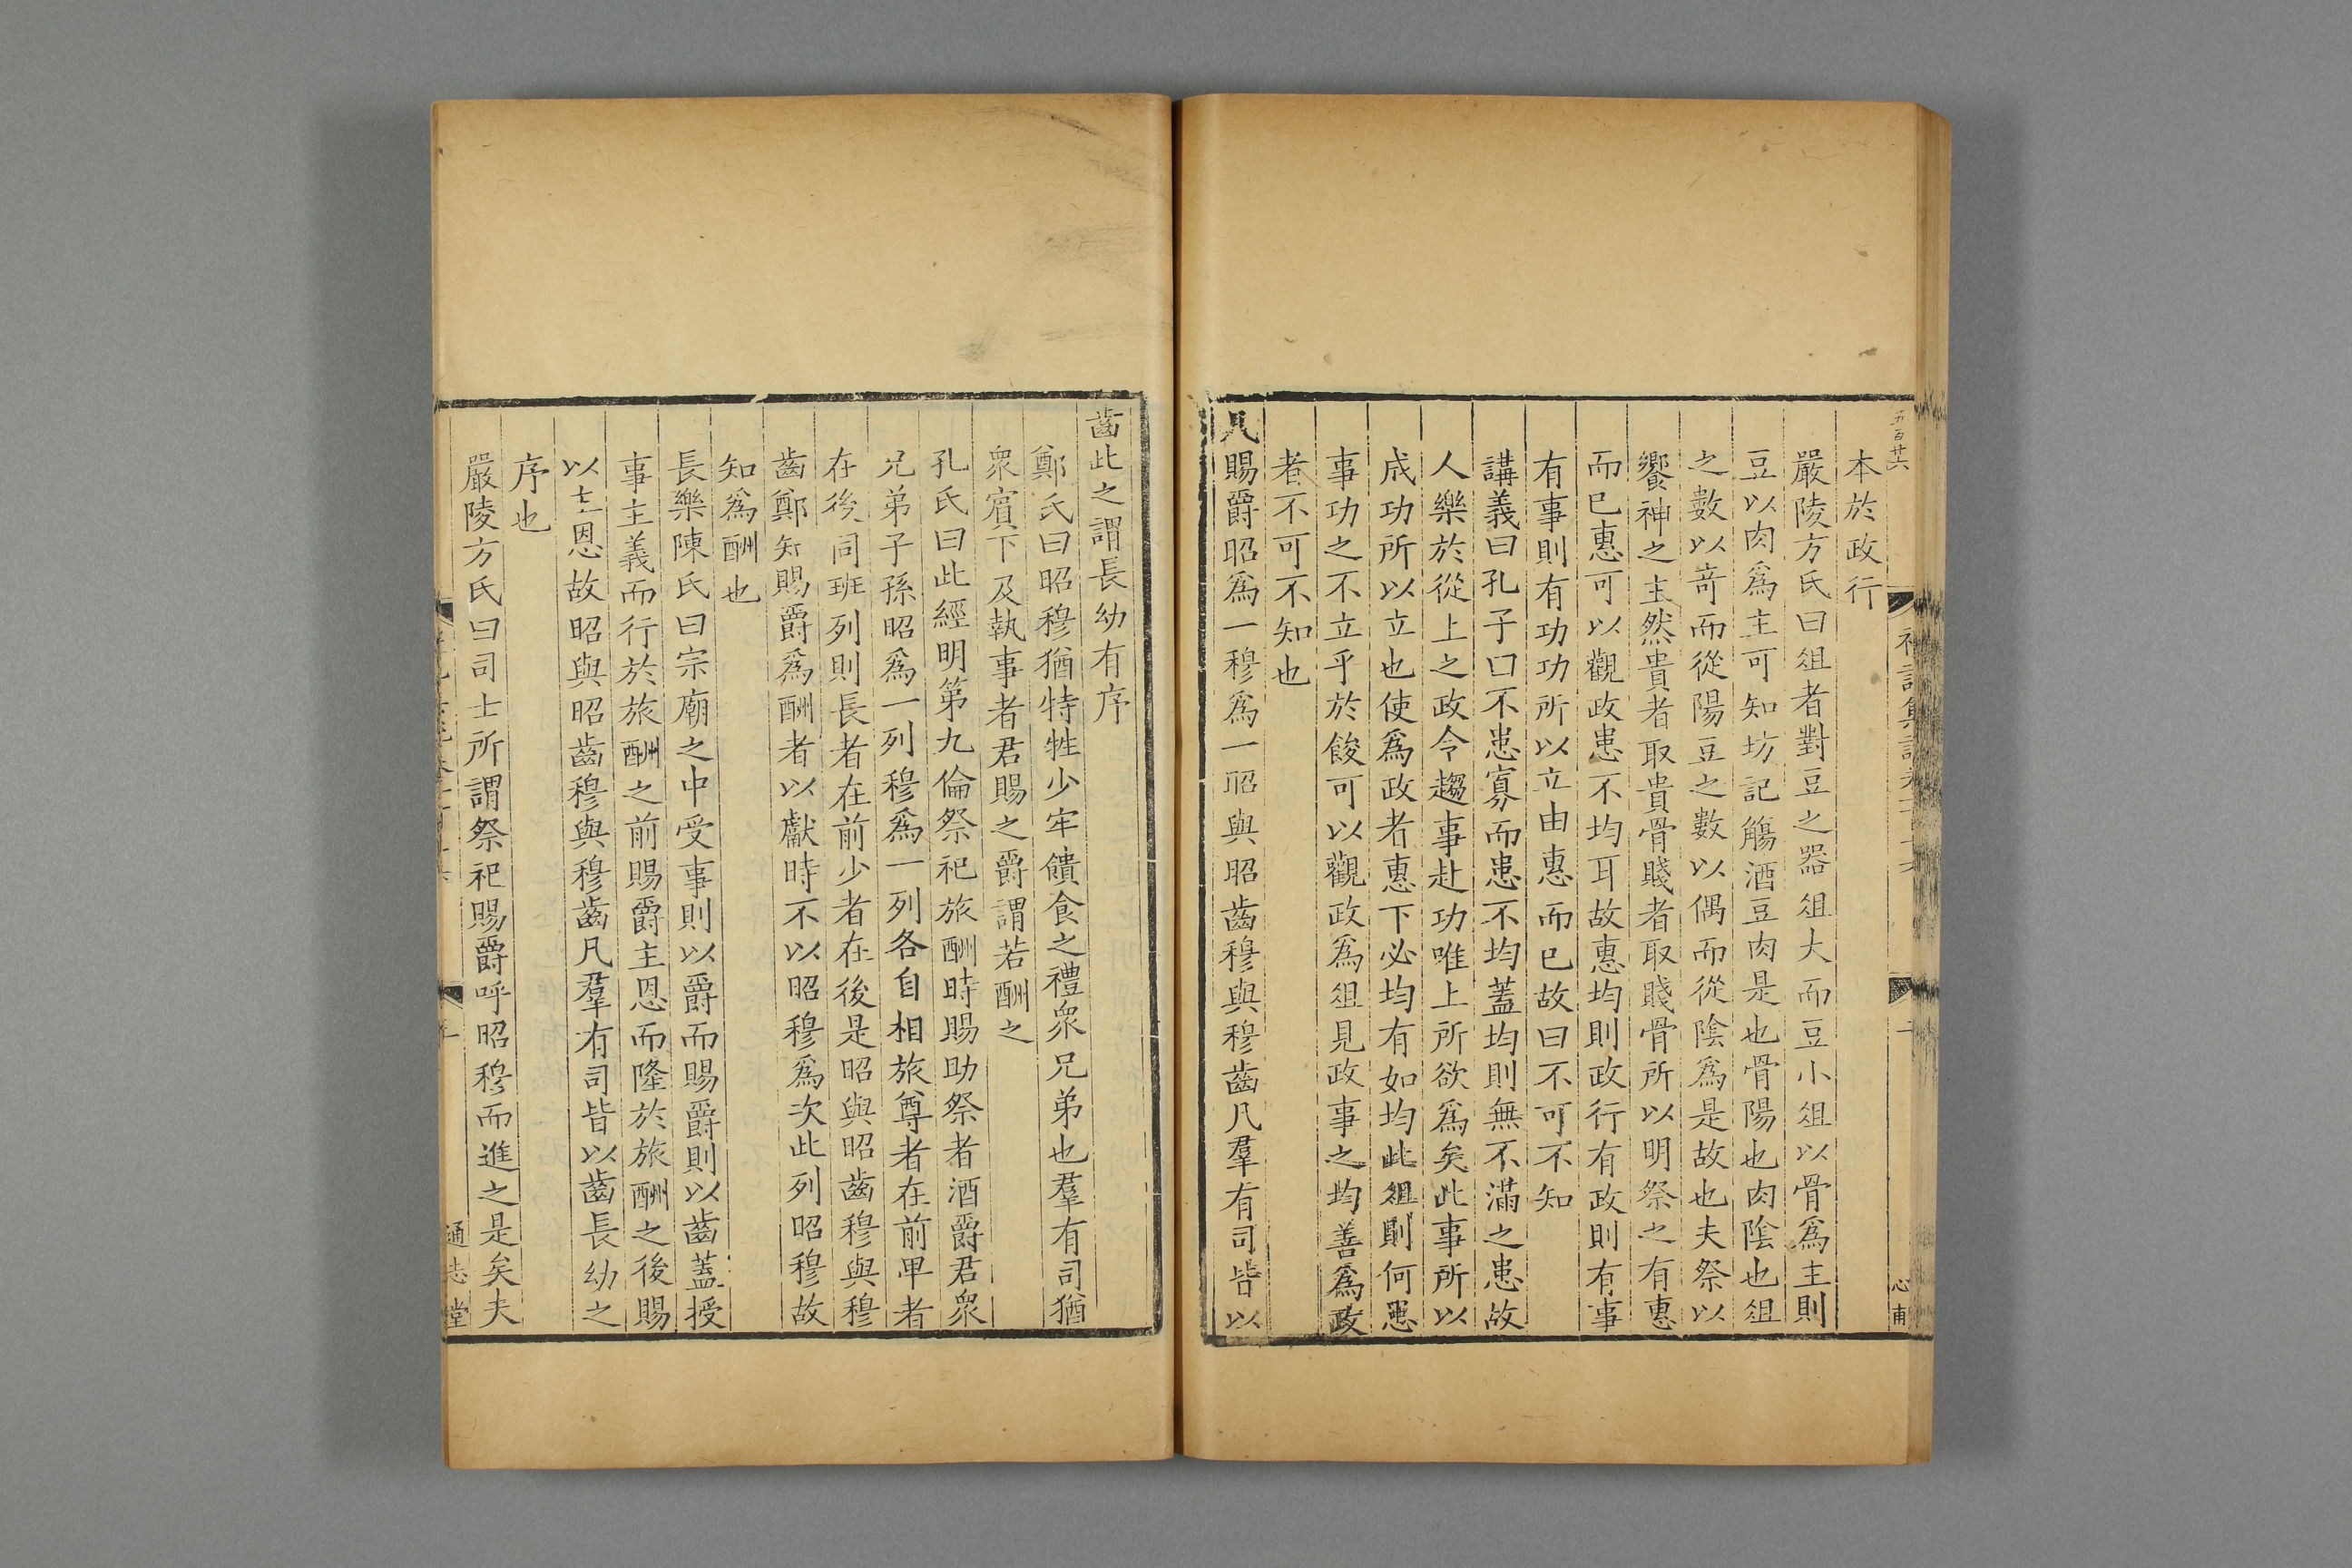 五百廿六
本於政行
嚴陵方氏曰俎者對豆之器俎大而豆小俎以骨爲主則
豆以肉爲主可知坊記觴酒豆肉是也骨陽也肉陰也俎
之數以竒而從陽豆之數以偶而從陰爲是故也夫祭以
饗神之主然貴者取貴骨賤者取賤骨所以明祭之有惠
而已惠可以觀政患不均耳故惠均則政行有政則有事
有事則有功功所以立由惠而已故曰不可不知
講義曰孔子曰不患寡而患不均蓋均則無不滿之患故
人樂於從上之政令趨事赴功唯上所欲爲矣此事所以
成功所以立也使爲政者惠下必均有如均此俎則何患
事功之不立乎於餕可以觀政爲俎見政事之均善爲政
者不可不知也
凡賜爵昭爲一穆爲一昭與昭齒穆與穆齒凡羣有司皆以
心甫
齒此之謂長幼有序
鄭氏曰昭穆猶特牲少牢饋食之禮衆兄弟也羣有司猶
衆賓下及執事者君賜之爵謂若酬之
孔氏曰此經明第九倫祭祀旅酬時賜助祭者酒爵君衆
兄弟子孫昭爲一列穆爲一列各自相旅尊者在前卑者
在後同班列則長者在前少者在後是昭與昭齒穆與穆
齒鄭知賜爵爲酬者以獻時不以昭穆爲次此列昭穆故
知爲酬也
長樂陳氏曰宗廟之中受事則以爵而賜爵則以齒蓋授
事主義而行於旅酬之前賜爵主恩而隆於旅酬之後賜
以主恩故昭與昭齒穆與穆齒凡羣有司皆以齒長幼之
序也
嚴陵方氏曰司士所謂祭祀賜爵呼昭穆而進之是矣夫
通志堂